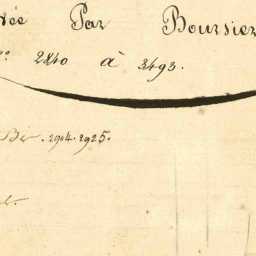 ée Par Boursier
n° 2840 à 3493.
1904.1925.